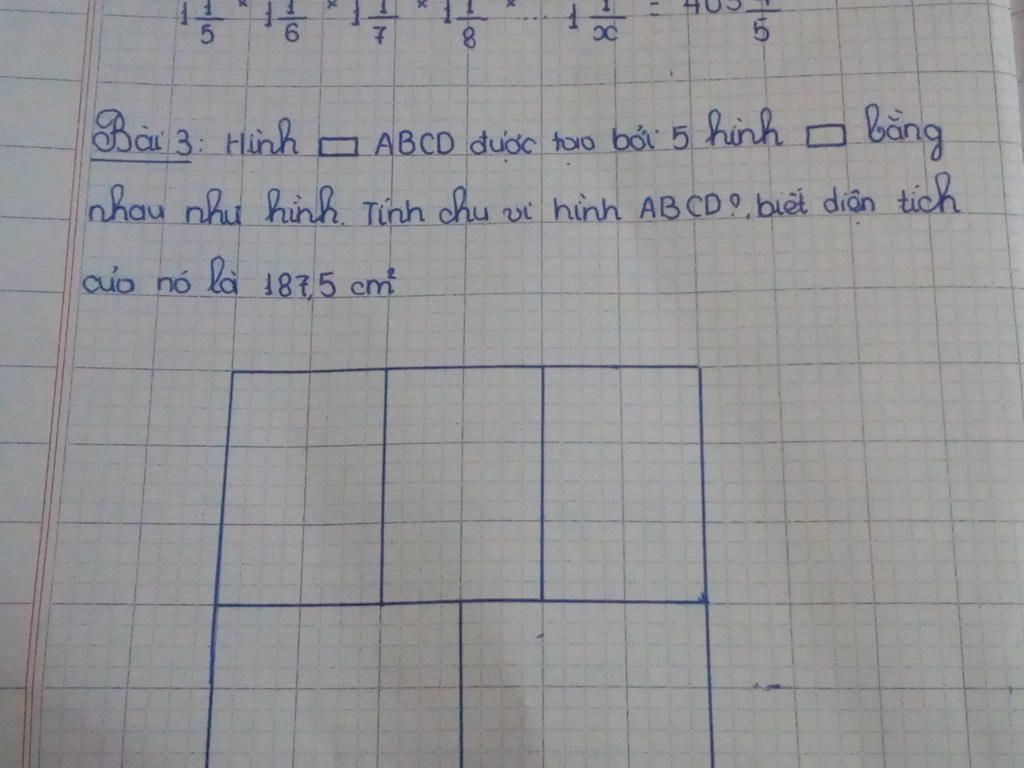 1 1/5 × 1 1/6 × 1 1/7 × 1 1/8 × ... 1 1/x = 403 1/5
Bài 3: Hình ▭ ABCD được tạo bởi 5 hình ▭ bằng
nhau như hình. Tính chu vi hình ABCD?, biết diện tích
của nó là 187,5 cm²